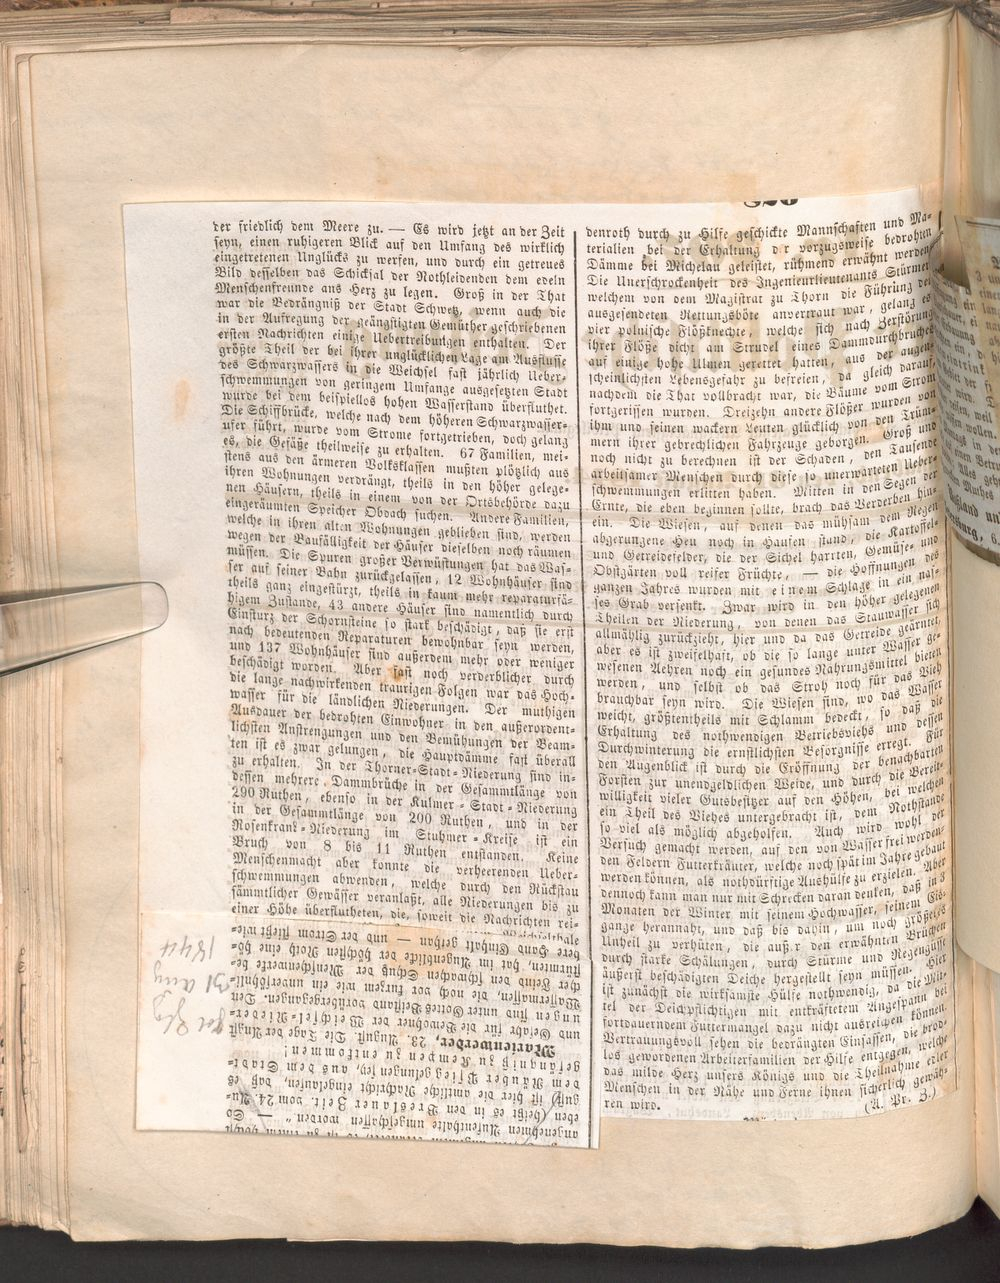 826
der friedlich dem Meere zu. — Es wird jetzt an der Zeit
seyn, einen ruhigeren Blick auf den Umfang des wirklich
eingetretenen Unglücks zu werfen, und durch ein getreues
Bild desselben das Schicksal der Nothleidenden dem edeln
Menschenfreunde ans Herz zu legen. Groß in der That
war die Bedrängniß der Stadt Schwetz, wenn auch die
in der Aufregung der geängstigten Gemüther geschriebenen
ersten Nachrichten einige Uebertreibungen enthalten. Der
größte Theil der bei ihrer unglücklichen Lage am Ausflusse
des Schwarzwassers in die Weichsel fast jährlich Ueber-
schwemmungen von geringem Umfange ausgesetzten Stadt
wurde bei dem beispiellos hohen Wasserstand überfluthet.
Die Schiffbrücke, welche nach dem höheren Schwarzwasser-
ufer führt, wurde vom Strome fortgetrieben, doch gelang
es, die Gefäße theilweise zu erhalten. 67 Familien, mei-
stens aus den ärmeren Volksklassen mußten plötzlich aus
ihren Wohnungen verdrängt, theils in den höher gelege-
nen Häusern, theils in einem von der Ortsbehörde dazu
eingeräumten Speicher Obdach suchen. Andere Familien,
welche in ihren alten Wohnungen geblieben sind, werden
wegen der Baufälligkeit der Häuser dieselben noch räumen
müssen. Die Spuren großer Verwüstungen hat das Was-
ser auf seiner Bahn zurückgelassen, 12 Wohnhäuser sind
theils ganz eingestürzt, theils in kaum mehr reparaturfä-
higem Zustande, 43 andere Häuser sind namentlich durch
Einsturz der Schornsteine so stark beschädigt, daß sie erst
nach bedeutenden Reparaturen bewohnbar seyn werden,
und 137 Wohnhäuser sind außerdem mehr oder weniger
beschädigt worden. Aber fast noch verderblicher durch
die lange nachwirkenden traurigen Folgen war das Hoch-
wasser für die ländlichen Niederungen. Der muthigen
Ausdauer der bedrohten Einwohner in den außerordent-
lichsten Anstrengungen und den Bemühungen der Beam-
ten ist es zwar gelungen, die Hauptdämme fast überall
zu erhalten. In der Thorner-Stadt-Niederung sind in-
dessen mehrere Dammbrüche in der Gesammtlänge von
290 Ruthen, ebenso in der Kulmer-Stadt-Niederung
in der Gesammtlänge von 200 Ruthen, und in der
Rosenkrank-Niederung im Stuhmer-Kreise ist ein
Bruch von 8 bis 11 Ruthen entstanden. Keine
Menschenmacht aber konnte die verheerenden Ueber-
schwemmungen abwenden, welche durch den Rückstau
sämmtlicher Gewässer veranlaßt, alle Niederungen bis zu
einer Höhe überflutheten, die, soweit die Nachrichten rei-
denroth durch zu Hilfe geschickte Mannschaften und Ma-
terialien bei der Erhaltung der vorzugsweise bedrohten
Dämme bei Michelau geleistet, rühmend erwähnt werden.
Die Unerschrockenheit des Ingenieurlieutenants Stürmer
welchem von dem Magistrat zu Thorn die Führung der
ausgesendeten Rettungsböte anvertraut war, gelang es
vier polnische Flößknechte, welche sich nach Zerstörung
ihrer Flöße dicht am Strudel eines Dammdurchbruches
auf einige hohe Ulmen gerettet hatten, aus der augen-
scheinlichsten Lebensgefahr zu befreien, da gleich darauf,
nachdem die That vollbracht war, die Bäume vom Strom
fortgerissen wurden. Dreizehn andere Flößer wurden von
ihm und seinen wackern Leuten glücklich von den Trüm-
mern ihrer gebrechlichen Fahrzeuge geborgen. Groß und
noch nicht zu berechnen ist der Schaden, den Tausende
arbeitsamer Menschen durch diese so unerwarteten Ueber-
schwemmungen erlitten haben. Mitten in den Segen der
Ernte, die eben beginnen sollte, brach das Verderben hin-
ein. Die Wiesen, auf denen das mühsam dem Regen
abgerungene Heu noch in Haufen stand, die Kartoffel-
und Getreidefelder, die der Sichel harrten, Gemüse- und
Obstgärten voll reifer Früchte, — die Hoffnungen des
ganzen Jahres wurden mit einem Schlage in ein nas-
ses Grab versenkt. Zwar wird in den höher gelegenen
Theilen der Niederung, von denen das Stauwasser sich
allmählig zurückzieht, hier und da das Getreide geärntet,
aber es ist zweifelhaft, ob die so lange unter Wasser ge-
wesenen Aehren noch ein gesundes Nahrungsmittel bieten
werden, und selbst ob das Stroh noch für das Vieh
brauchbar seyn wird. Die Wiesen sind, wo das Wasser
weicht, größtentheils mit Schlamm bedeckt, so daß die
Erhaltung des nothwendigen Betriebsviehs und dessen
Durchwinterung die ernstlichsten Besorgnisse erregt. Für
den Augenblick ist durch die Eröffnung der benachbarten
Forsten zur unendgeldlichen Weide, und durch die Bereit-
willigkeit vieler Gutsbesitzer auf den Höhen, bei welchen
ein Theil des Viehes untergebracht ist, dem Nothstande
so viel als möglich abgeholfen. Auch wird wohl der
Versuch gemacht werden, auf den von Wasser frei werden-
den Feldern Futterkräuter, welche noch spät im Jahre gebaut
werden können, als nothdürftige Aushülfe zu erzielen. Aber
dennoch kann man nur mit Schrecken daran denken, daß in 3
Monaten der Winter mit seinem Hochwasser, seinem Eis-
gange herannaht, und daß bis dahin, um noch größeres
Unheil zu verhüten, die außer den erwähnten Brüchen
durch starke Schälungen, durch Stürme und Regengüsse
äußerst beschädigten Deiche hergestellt seyn müssen. Hier
ist zunächst die wirksamste Hülfe nothwendig, da die Mit-
tel der Deichpflichtigen mit entkräftetem Angespann bei
fortdauerndem Futtermangel dazu nicht ausreichen können.
Vertrauungsvoll sehen die bedrängten Einsassen, die brod-
los gewordenen Arbeiterfamilien der Hilfe entgegen, welche
das milde Herz unsers Königs und die Theilnahme edler
Menschen in der Nähe und Ferne ihnen sicherlich gewäh-
ren wird. (A. Pr. Z.)
angenehmen Aufenthalte umgeschaffen worden." — So
eben (heißt es in der Breslauer Zeit. vom 24. Au-
gust) ist die amtliche Nachricht eingelaufen, daß es
dem Räuber Pflieg gelungen sey, aus dem Stadt-
gefängniß zu Kempen zu entkommen!
Marienwerder, 23. August. Die Tage der Angst
und Gefahr für die Bewohner der Weichsel-Niederun-
ungen sind unter Gottes Beistand vorübergegangen. Den
Wassermassen, die noch vor kurzem wie ein unaufhörli-
cher Feind den schwachen Schutz der Menschenwerke be-
stürmten, hat im Augenblicke der höchsten Noth eine hö-
here Hand Einhalt gethan — und der Strom fließt wie-
31 aug
1844